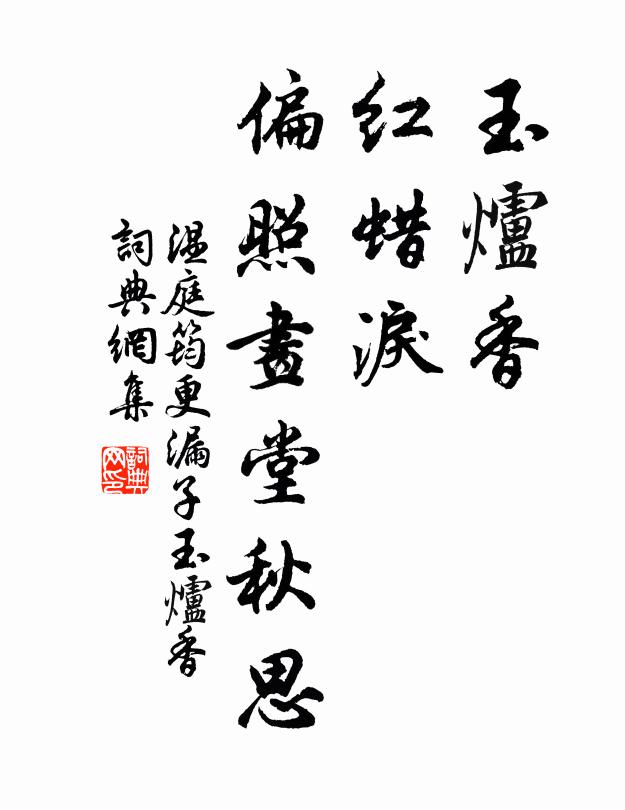 玉爐香
紅蜡淚
偏照畫堂秋思
温庭筠更漏子玉爐香
詞典網集
詞典网印